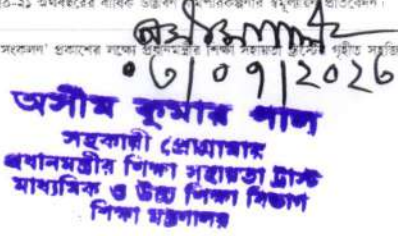 ২০-২১ অর্থবছরের বার্ষিক উদ্ভাবন কর্মপরিকল্পনার স্বমূল্যায়ণ প্রতিবেদন।
সংকলন' প্রকাশের লক্ষ্যে প্রধানমন্ত্রীর শিক্ষা সহায়তা ট্রাস্টের গৃহীত সহজি
অসীম কুমার পাল
সহকারী প্রোগ্রামার
প্রধানমন্ত্রীর শিক্ষা সহায়তা ট্রাস্ট
মাধ্যমিক ও উচ্চ শিক্ষা বিভাগ
শিক্ষা মন্ত্রণালয়